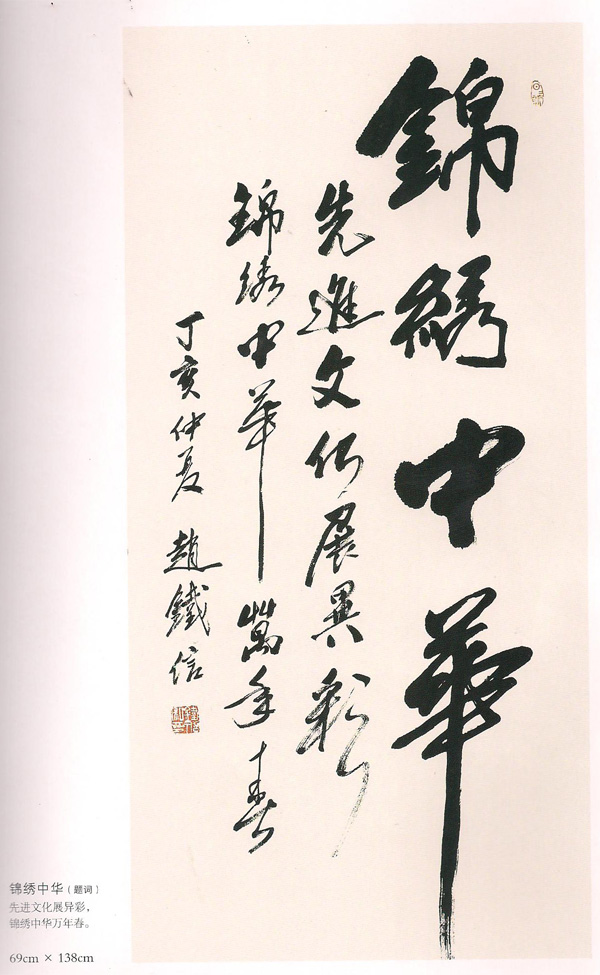 錦綉中華
先進文化展異彩
錦綉中華萬年春
丁亥仲夏 趙鐵信
锦绣中华（题词）
先进文化展异彩，
锦绣中华万年春。
69cm × 138cm